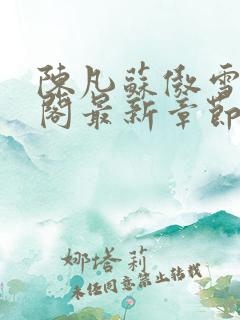 陳凡蘇傲雪
閣最新章節
娜塔莉
未經同意禁止轉載